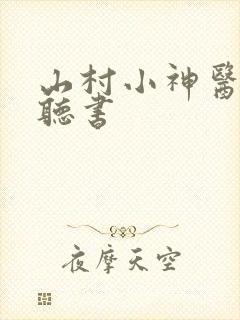 山村小神醫
聽書
夜摩天空